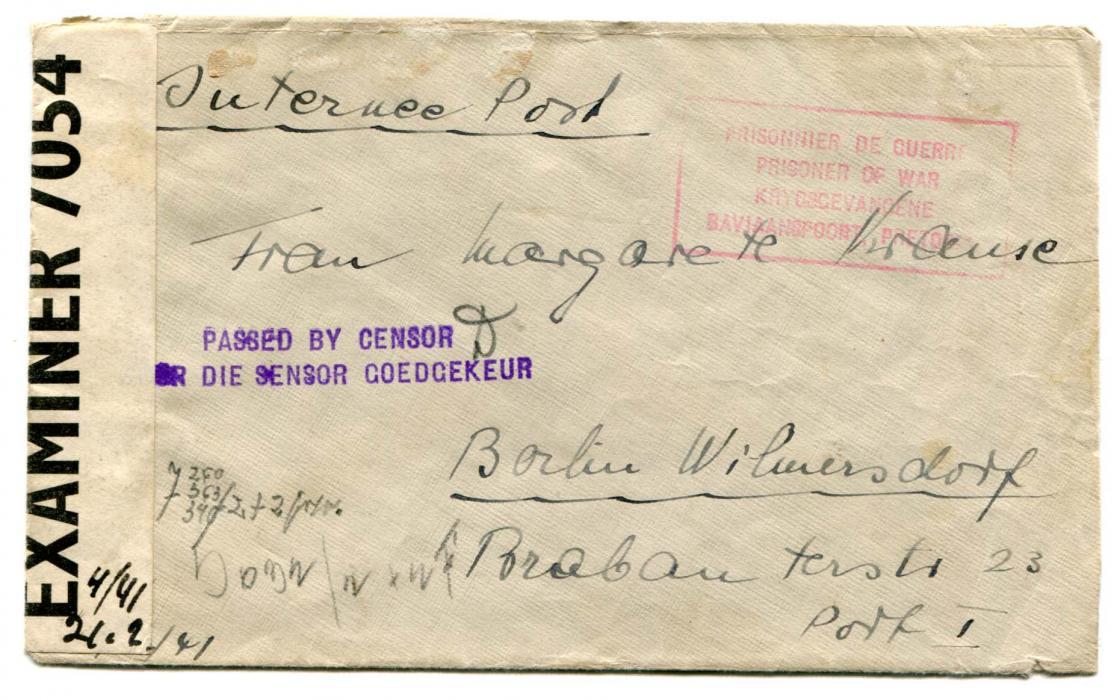 EXAMINER 7054
4/41
21.2./41
Internee Post
PRISONNIER DE GUERRE
PRISONER OF WAR
KRYGSGEVANGENE
BAVIAANSPOORT, PRETORIA
Frau Margarete Krause
D
PASSED BY CENSOR
DIE SENSOR GOEDGEKEUR
Berlin Wilmersdorf
Brabanterstr 23
Port I
260
363/2 + 2
340